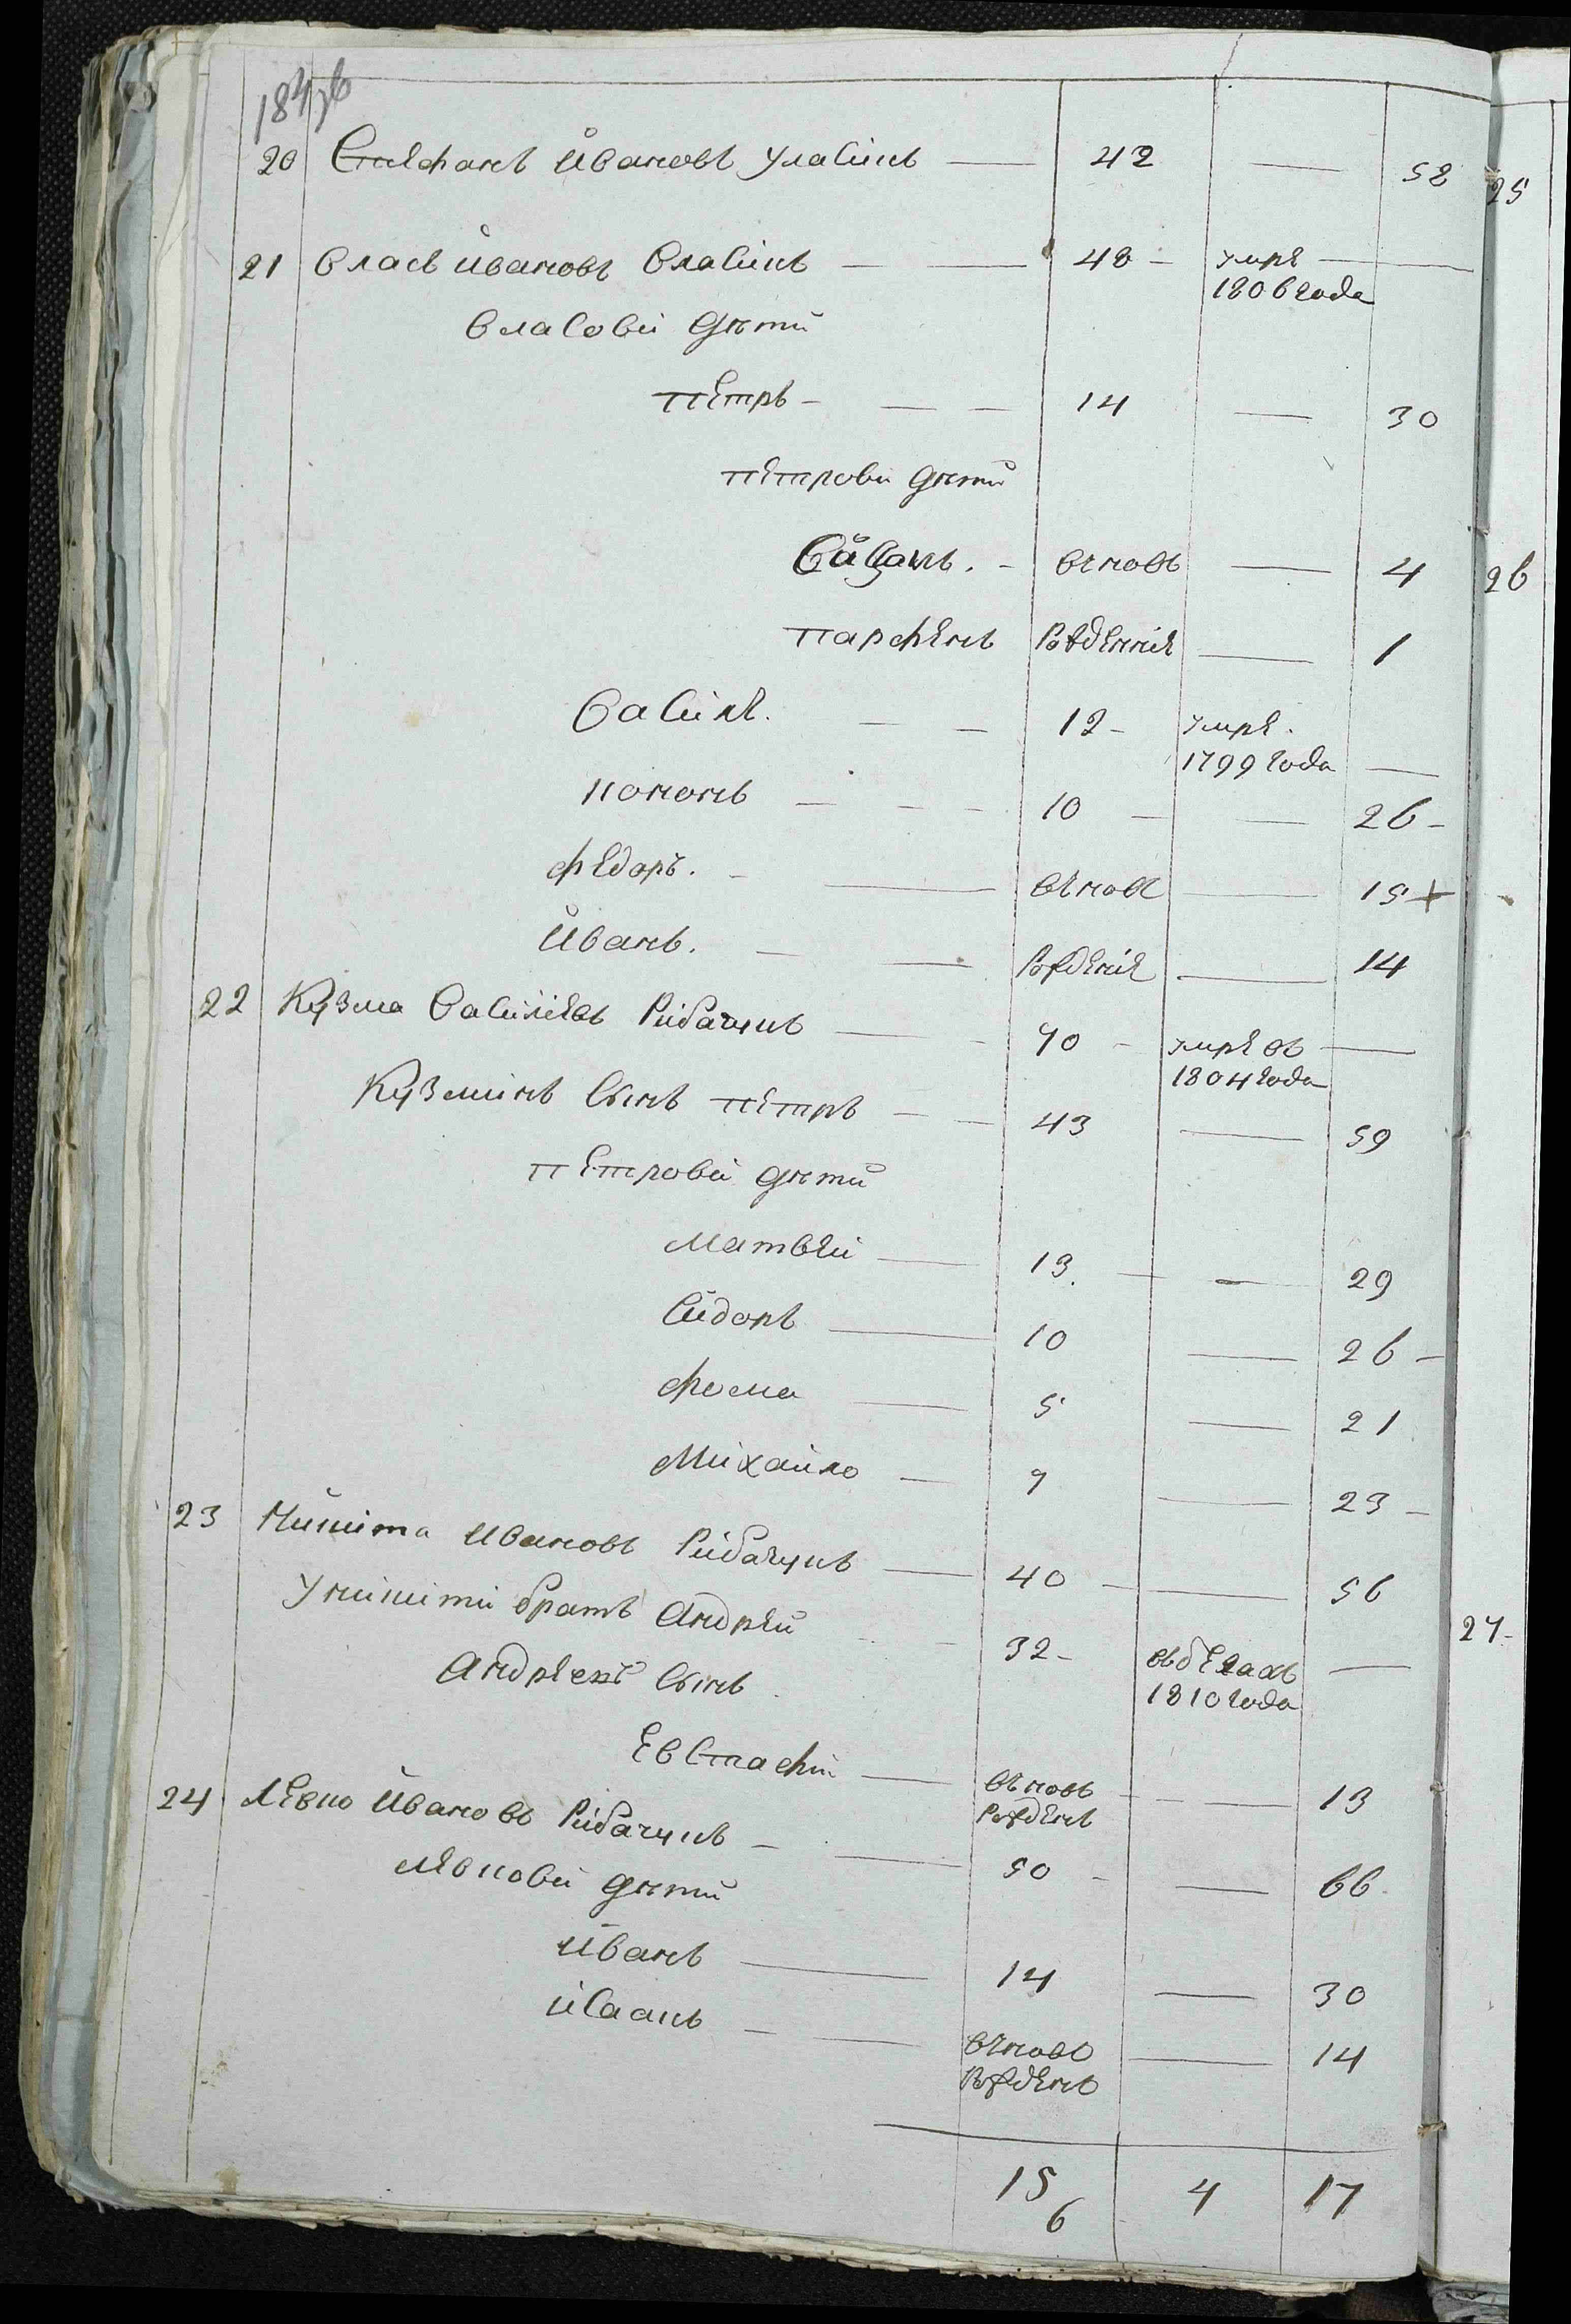 20 Степанъ Ивановъ Уласикъ — 42 — 58
21 Власъ Ивановъ Власикъ — 48 — умре —
1806 года
Власови дѣти
Петръ — 14 — 30
Петрови дѣти
вновъ — 4
Парфенъ рожденніе — 1
Василе. — 12 — умре.
1799 года —
Кононъ — 10 — 26 —
Федоръ. — вновъ — 15 +
Иванъ. — рожденіе — 14
22 Кузма Василіевъ Рибачукъ — 70 — умре въ —
1804 года
Кузминъ синъ Петръ — 43 — 59
Петрови дѣти
Матвѣи — 13. — 29
Сидоръ — 10 — 26 —
Фома — 5 — 21
Михаило — 7 — 23 —
23 Никита Ивановъ Рибачукъ — 40 — 56
У Никити братъ Андрѣй — 32 — въ бѣгахъ —
1810 года
Андрѣевъ синъ
Евстафіи — вновъ — 13
рожденъ
24 Левко Ивановъ Рибачукъ — 50 — 66
Левкови дѣти
Иванъ — 14 — 30
Исаакъ — вновъ — 14
рожденъ
15 4 17
6
25
26
27